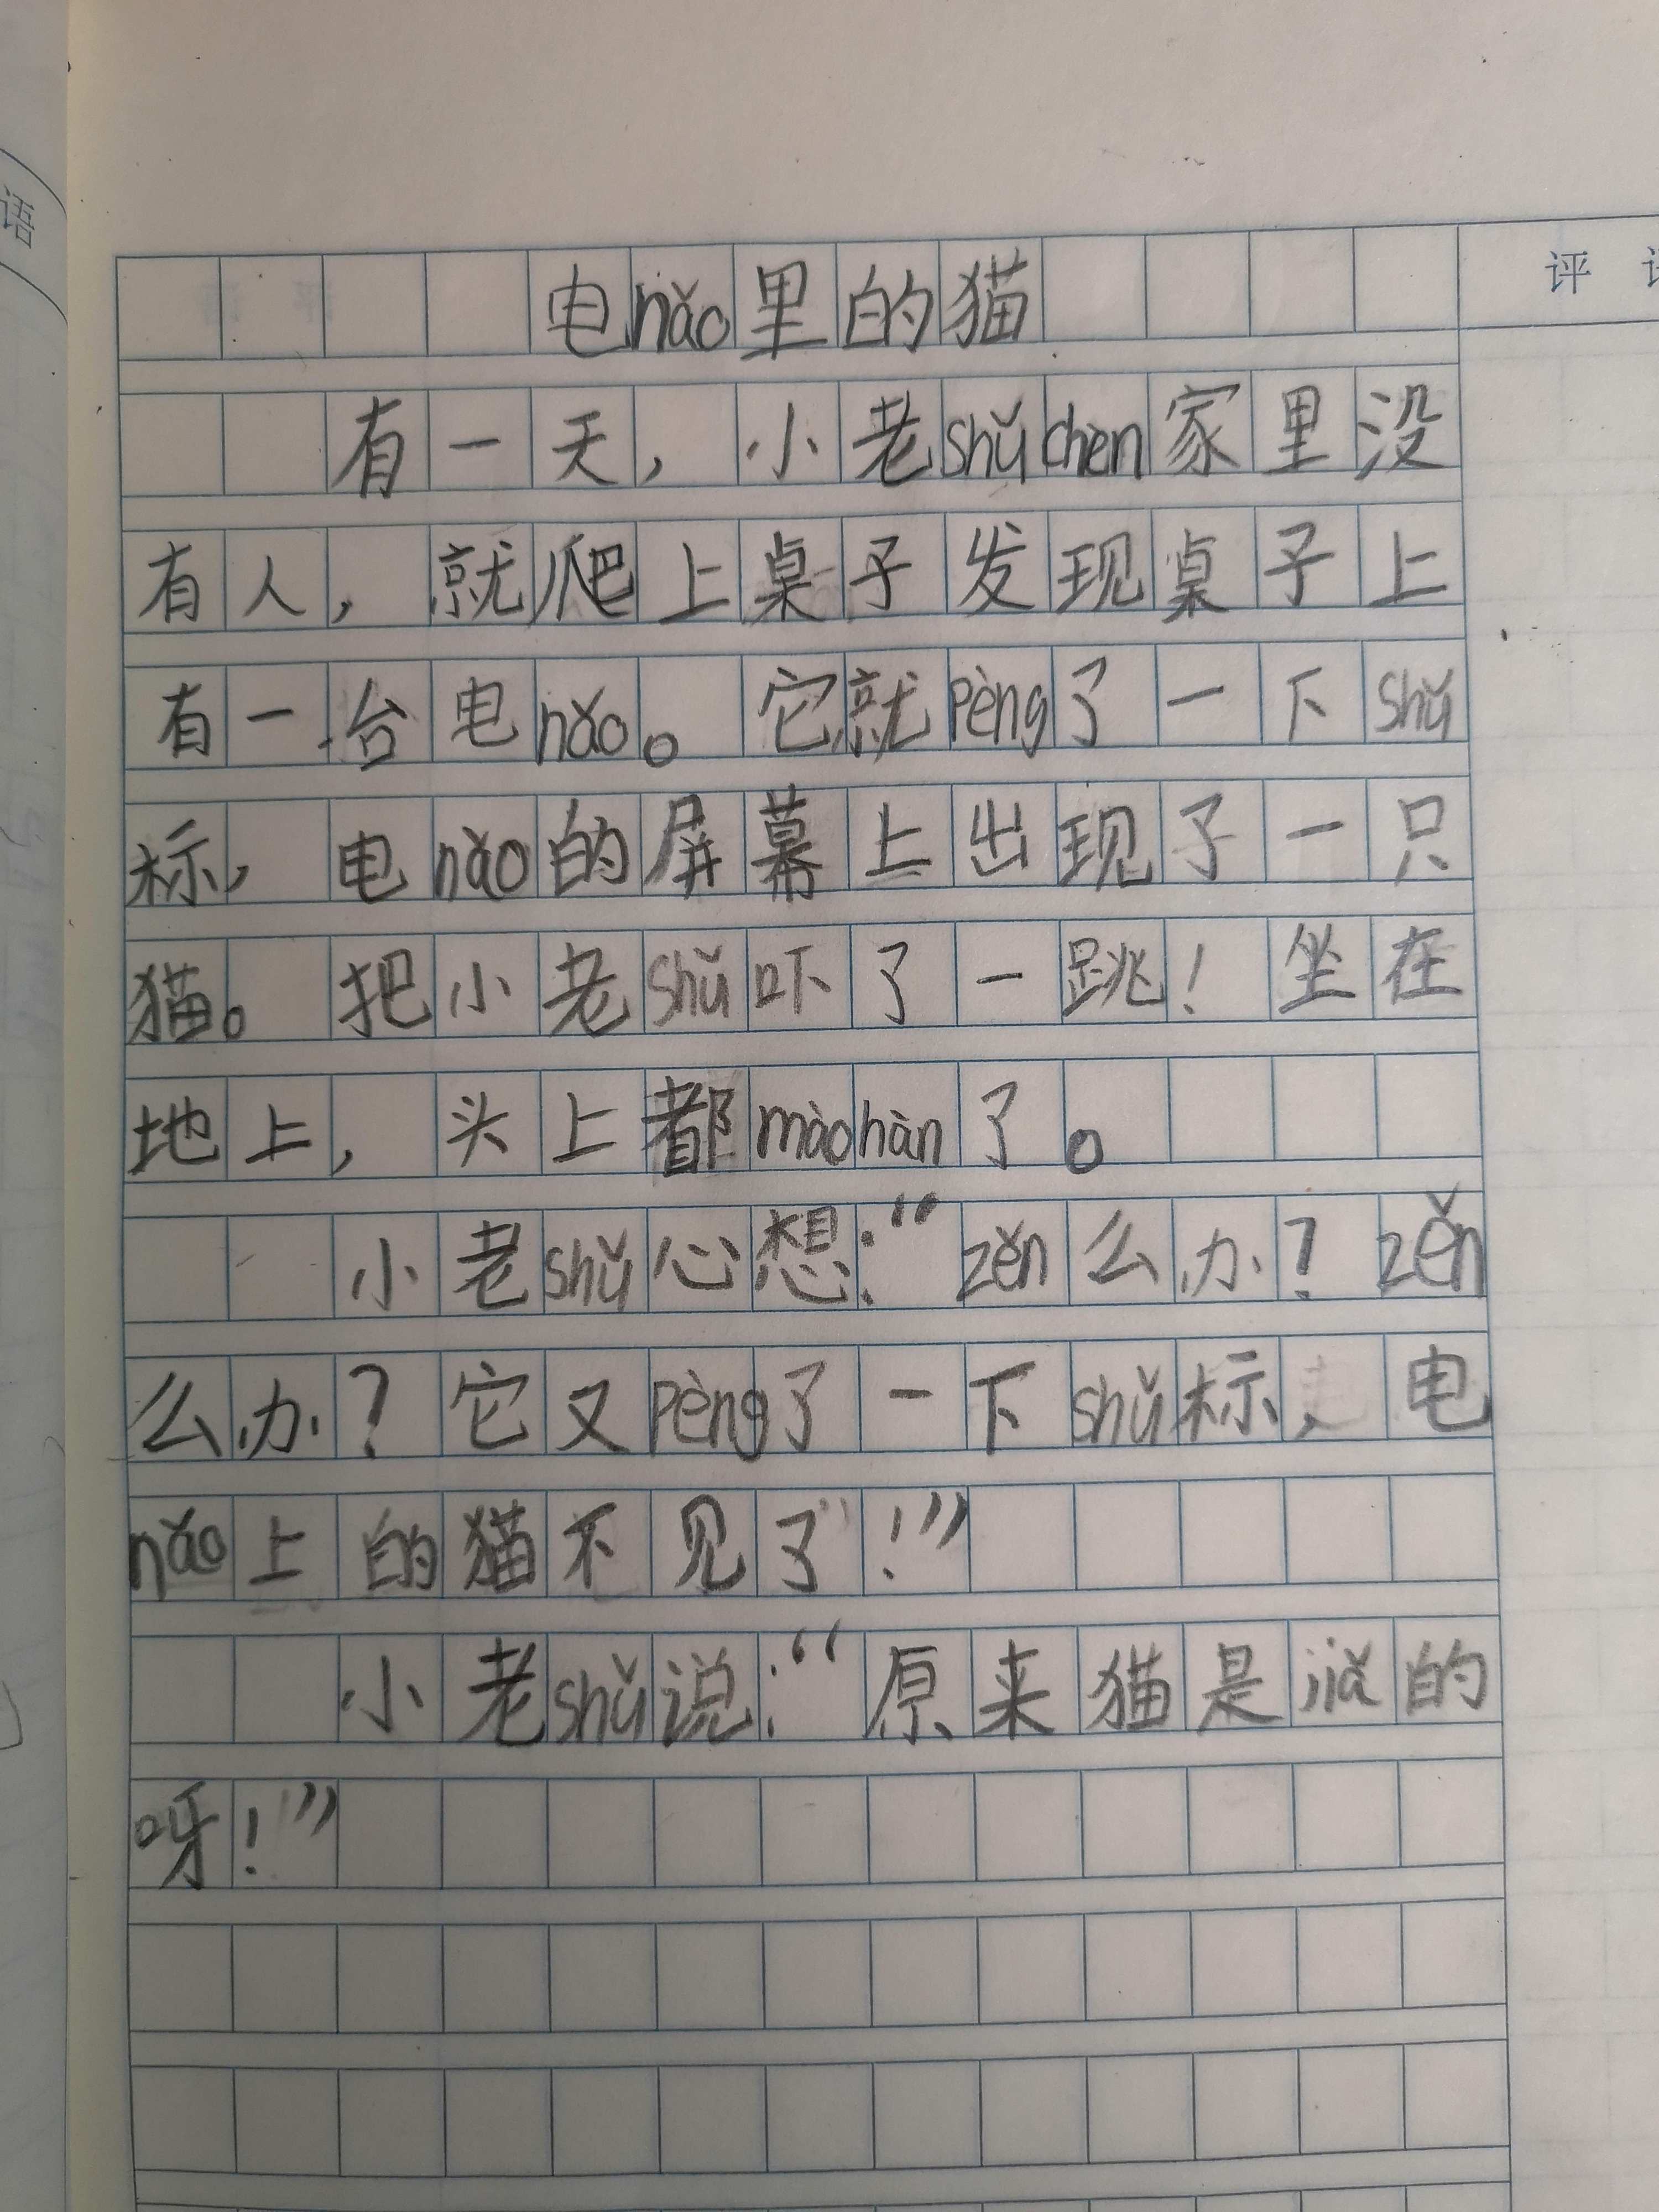 语
评
电nǎo里的猫
有一天，小老shǔchèn家里没
有人，就爬上桌子发现桌子上
有一台电nǎo。它就pèng了一下shǔ
标，电nǎo的屏幕上出现了一只
猫。把小老shǔ吓了一跳！坐在
地上，头上都màohàn了。
小老shǔ心想：“zěn么办？zěn
么办？它又pèng了一下shǔ标，电
nǎo上的猫不见了！”
小老shǔ说：“原来猫是jiǎ的
呀！”